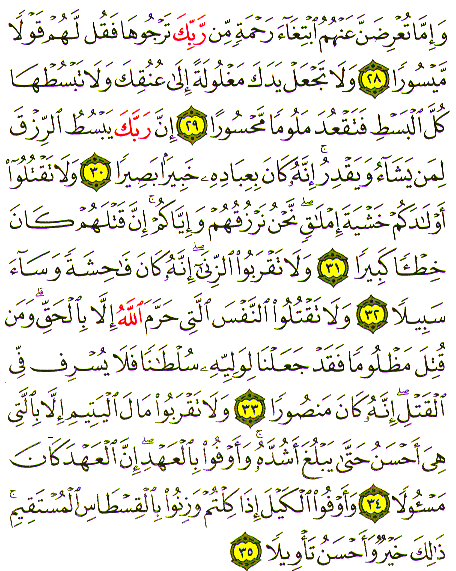 وَإِمَّا تُعْرِضَنَّ عَنْهُمُ ٱبْتِغَآءَ رَحْمَةٍ مِّن رَّبِّكَ تَرْجُوهَا فَقُل لَّهُمْ قَوْلًا
مَّيْسُورًا ٢٨ وَلَا تَجْعَلْ يَدَكَ مَغْلُولَةً إِلَىٰ عُنُقِكَ وَلَا تَبْسُطْهَا
كُلَّ ٱلْبَسْطِ فَتَقْعُدَ مَلُومًا مَّحْسُورًا ٢٩ إِنَّ رَبَّكَ يَبْسُطُ ٱلرِّزْقَ
لِمَن يَشَآءُ وَيَقْدِرُ ۚ إِنَّهُۥ كَانَ بِعِبَادِهِۦ خَبِيرًۢا بَصِيرًا ٣٠ وَلَا تَقْتُلُوٓا۟
أَوْلَـٰدَكُمْ خَشْيَةَ إِمْلَـٰقٍ ۖ نَّحْنُ نَرْزُقُهُمْ وَإِيَّاكُمْ ۚ إِنَّ قَتْلَهُمْ كَانَ
خِطْـًٔا كَبِيرًا ٣١ وَلَا تَقْرَبُوا۟ ٱلزِّنَىٰٓ ۖ إِنَّهُۥ كَانَ فَـٰحِشَةً وَسَآءَ
سَبِيلًا ٣٢ وَلَا تَقْتُلُوا۟ ٱلنَّفْسَ ٱلَّتِى حَرَّمَ ٱللَّهُ إِلَّا بِٱلْحَقِّ ۗ وَمَن
قُتِلَ مَظْلُومًا فَقَدْ جَعَلْنَا لِوَلِيِّهِۦ سُلْطَـٰنًا فَلَا يُسْرِف فِّى
ٱلْقَتْلِ ۖ إِنَّهُۥ كَانَ مَنصُورًا ٣٣ وَلَا تَقْرَبُوا۟ مَالَ ٱلْيَتِيمِ إِلَّا بِٱلَّتِى
هِىَ أَحْسَنُ حَتَّىٰ يَبْلُغَ أَشُدَّهُۥ ۚ وَأَوْفُوا۟ بِٱلْعَهْدِ ۖ إِنَّ ٱلْعَهْدَ كَانَ
مَسْـُٔولًا ٣٤ وَأَوْفُوا۟ ٱلْكَيْلَ إِذَا كِلْتُمْ وَزِنُوا۟ بِٱلْقِسْطَاسِ ٱلْمُسْتَقِيمِ ۚ
ذَٰلِكَ خَيْرٌ وَأَحْسَنُ تَأْوِيلًا ٣٥